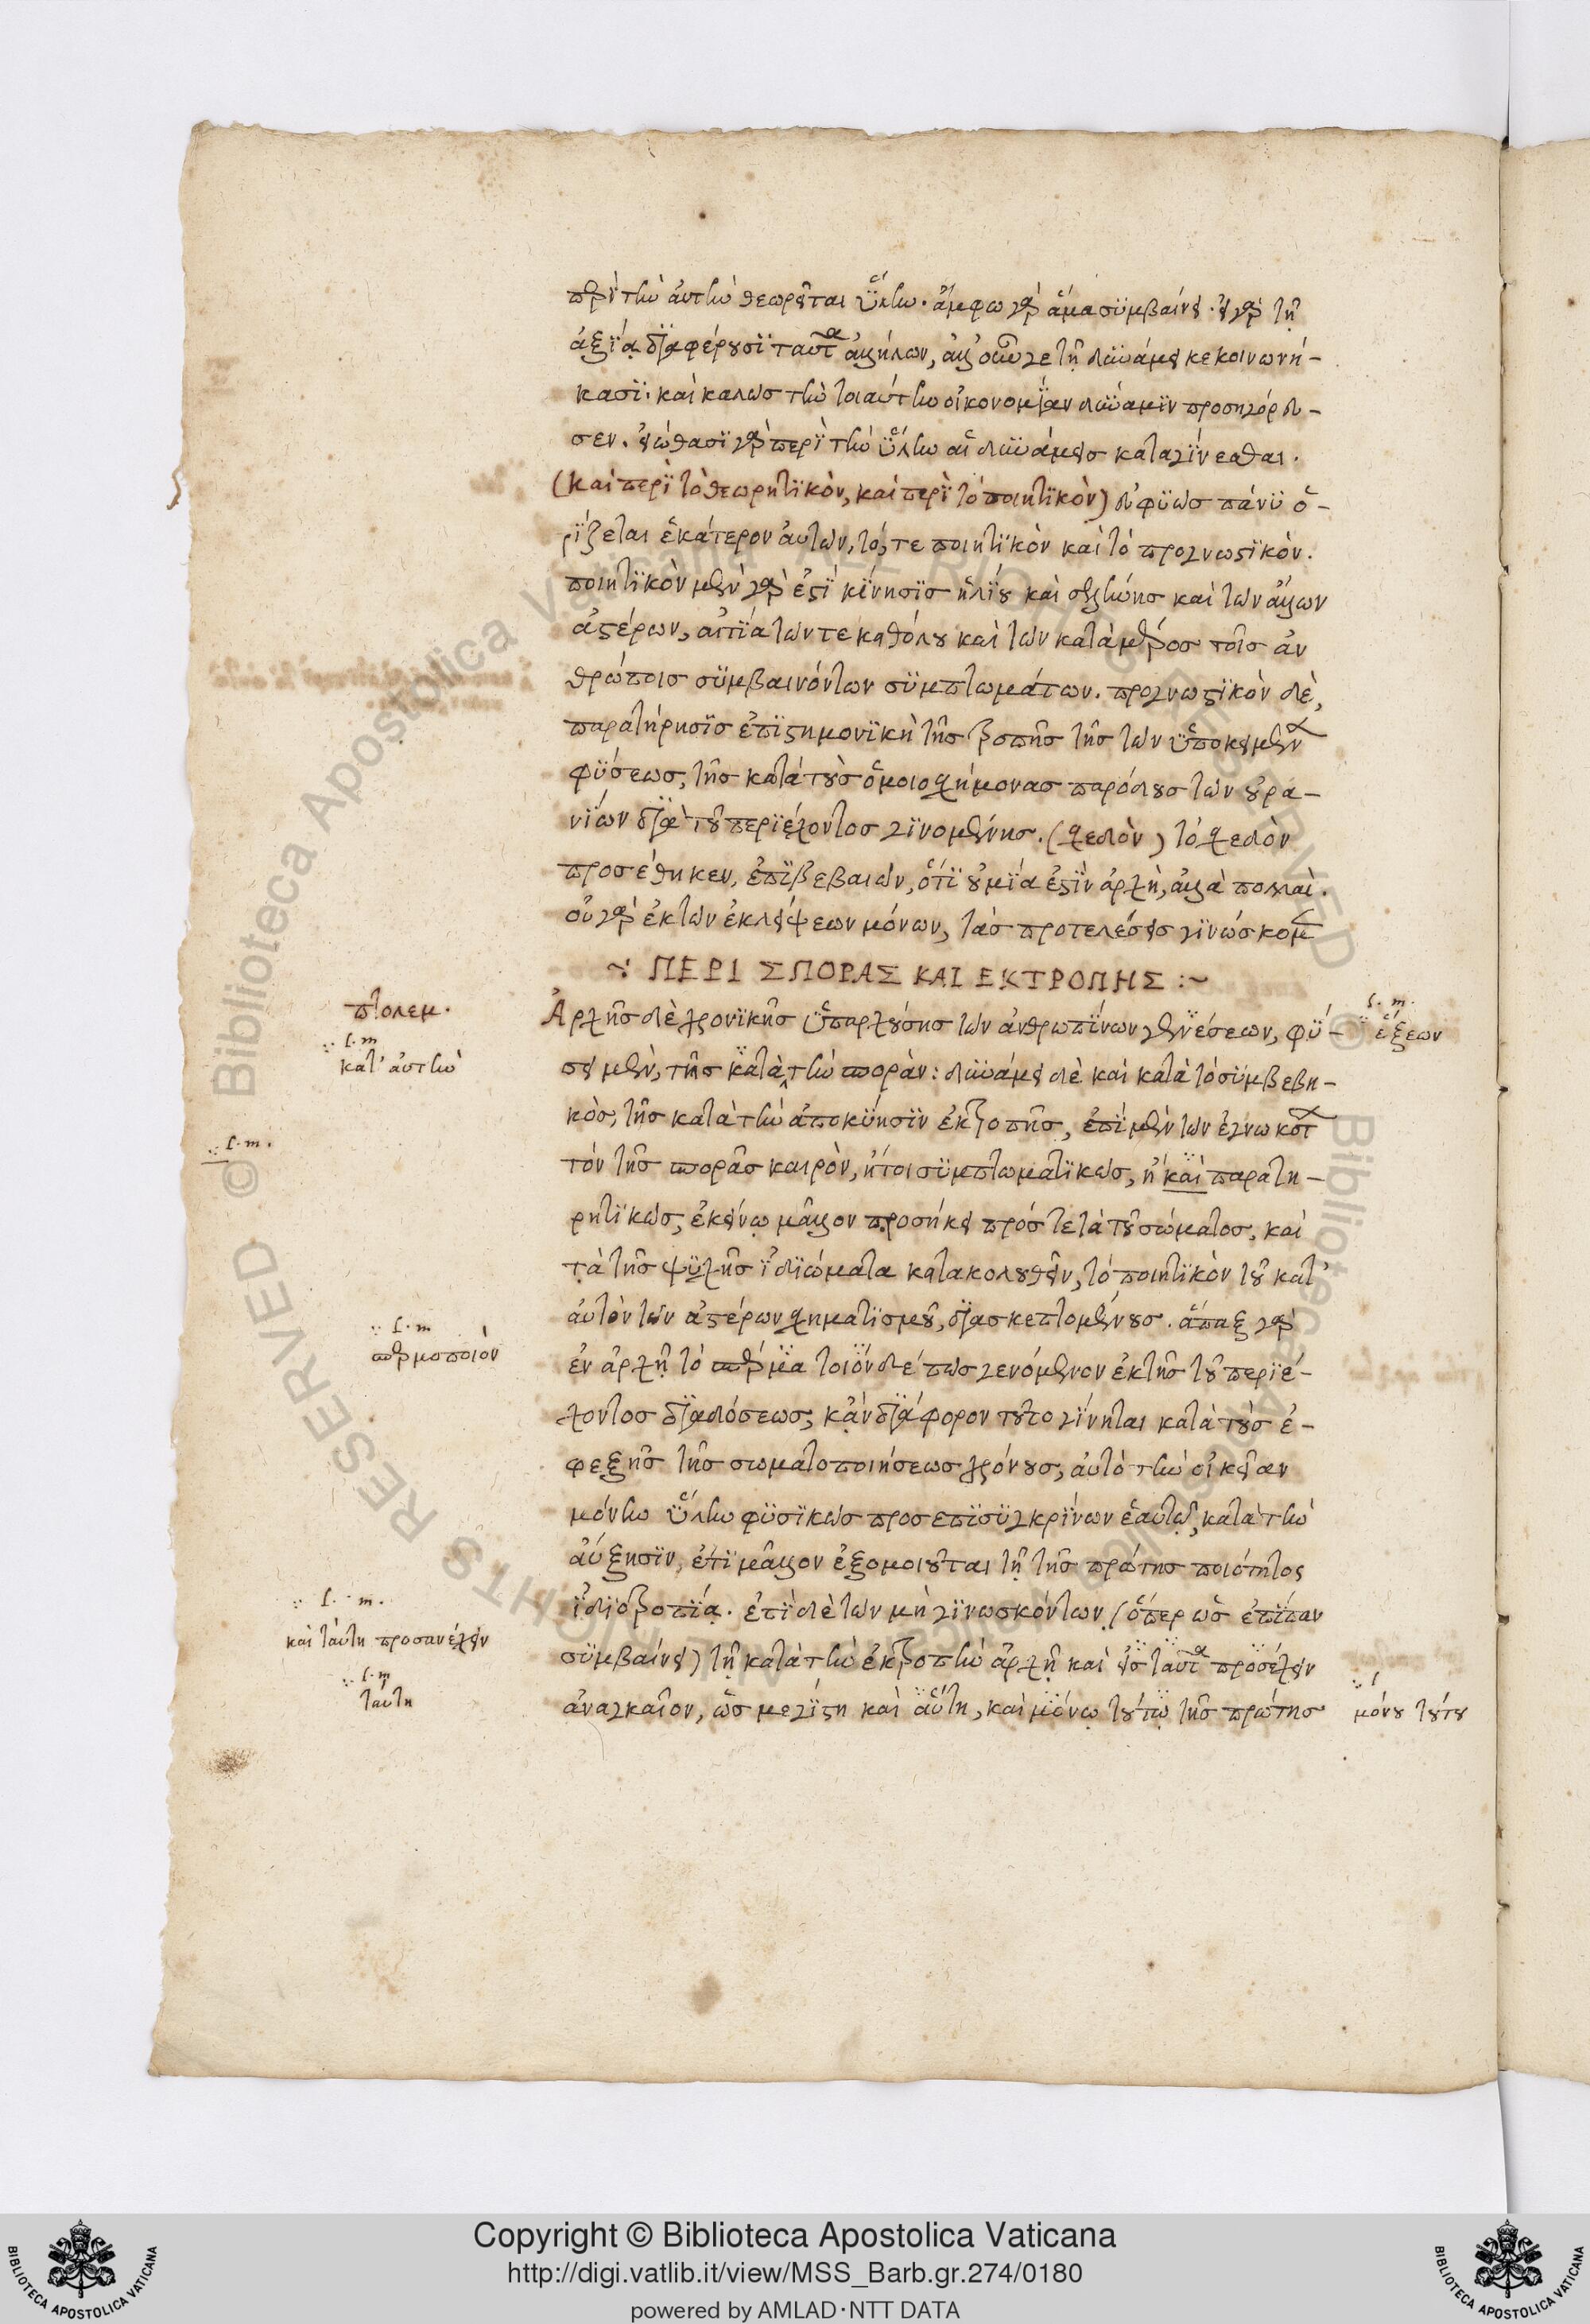 περὶ τὴν αὐτὴν θεωρεῖται ὕλην. ἄμφω γὰρ ἅμα συμβαίνει. εἰ γὰρ τῇ
ἀξίᾳ διαφέρουσι ταῦτα ἀλλήλων, ἀλλ' οὖν γε τῇ δυνάμει κεκοινωνή-
κασι. καὶ καλῶς τὴν τοιαύτην οἰκονομίαν δύναμιν προσηγόρευ-
σεν. εἰώθασι γὰρ περὶ τὴν ὕλην αἱ δυνάμεις καταγίνεσθαι.
(καὶ περὶ τὸ θεωρητικὸν, καὶ περὶ τὸ ποιητικὸν) εὐφυῶς πάνυ ὁ-
ρίζεται ἑκάτερον αὐτῶν, τό, τε ποιητικὸν καὶ τὸ προγνωστικὸν.
ποιητικὸν μὲν γὰρ ἐστὶ κίνησις ἡλίου καὶ σελήνης καὶ τῶν ἄλλων
ἀστέρων, αἰτία τῶν τε καθόλου καὶ τῶν κατὰ μέρος τοῖς ἀν
θρώποις συμβαινόντων συμπτωμάτων. προγνωστικὸν δὲ,
παρατήρησις ἐπιστημονικὴ τῆς ῥοπῆς τῆς τῶν ὑποκειμένων
φύσεως, τῆς κατὰ τοὺς ὁμοιοσχήμονας παρόδους τῶν οὐρα-
νίων διὰ τοῦ περιέχοντος γινομένης. (σχεδὸν) τὸ σχεδὸν
προσέθηκεν, ἐπιβεβαιῶν, ὅτι οὐ μία ἐστὶν ἀρχὴ, ἀλλὰ πολλαὶ.
οὐ γὰρ ἐκ τῶν ἐκλείψεων μόνων, τὰς προτελέσεις γινώσκομεν
~: ΠΕΡΙ ΣΠΟΡΑΣ ΚΑΙ ΕΚΤΡΟΠΗΣ :~
πτολεμ.
Ἀρχῆς δὲ χρονικῆς ὑπαρχούσης τῶν ἀνθρωπίνων γενέσεων, φύ-
s. m.
ἕξεων
f. m
κατ' αὐτὴν
σει μὲν, τῆς κατὰ τὴν σποράν: δυνάμει δὲ καὶ κατὰ τὸ συμβεβη-
κὸς, τῆς κατὰ τὴν ἀποκύησιν ἐκτροπῆς, ἐπὶ μὲν τῶν ἐγνωκότων
f. m.
τὸν τῆς σπορᾶς καιρὸν, ἤτοι συμπτωματικῶς, ἢ καὶ παρατη-
ρητικῶς, ἐκείνῳ μᾶλλον προσήκει πρός τε τὰ τοῦ σώματος, καὶ
τὰ τῆς ψυχῆς ἰδιώματα κατακολουθεῖν, τὸ ποιητικὸν τοῦ κατ'
αὐτὸν τῶν ἀστέρων σχηματισμοῦ, διασκεπτομένους. ἅπαξ γὰρ
f. m
σπερμοποιὸν
ἐν ἀρχῇ τὸ σπέρμα τοιόνδε πως γενόμενον ἐκ τῆς τοῦ περιέ-
χοντος διαδόσεως, κἂν διάφορον τοῦτο γίνηται κατὰ τοὺς ἐ-
φεξῆς τῆς σωματοποιήσεως χρόνους, αὐτὸ τὴν οἰκείαν
μόνην ὕλην φυσικῶς προσεπισυγκρίνων ἑαυτῷ, κατὰ τὴν
αὔξησιν, ἔτι μᾶλλον ἐξομοιοῦται τῇ τῆς πρώτης ποιότητος
f. m.
καὶ ταύτῃ προσανέχειν
ἰδιοτροπίᾳ. ἐπὶ δὲ τῶν μὴ γινωσκόντων, (ὅπερ ὡς ἐπίπαν
συμβαίνει) τῇ κατὰ τὴν ἐκτροπὴν ἀρχῇ καὶ εἰς ταῦτα προσέχειν
f. m
ταύτη
ἀναγκαῖον, ὡς μεγίστη καὶ αὕτη, καὶ μόνῳ τούτῳ τῆς πρώτης
f
μόνου τούτου
Copyright © Biblioteca Apostolica Vaticana
http://digi.vatlib.it/view/MSS_Barb.gr.274/0180
powered by AMLAD·NTT DATA